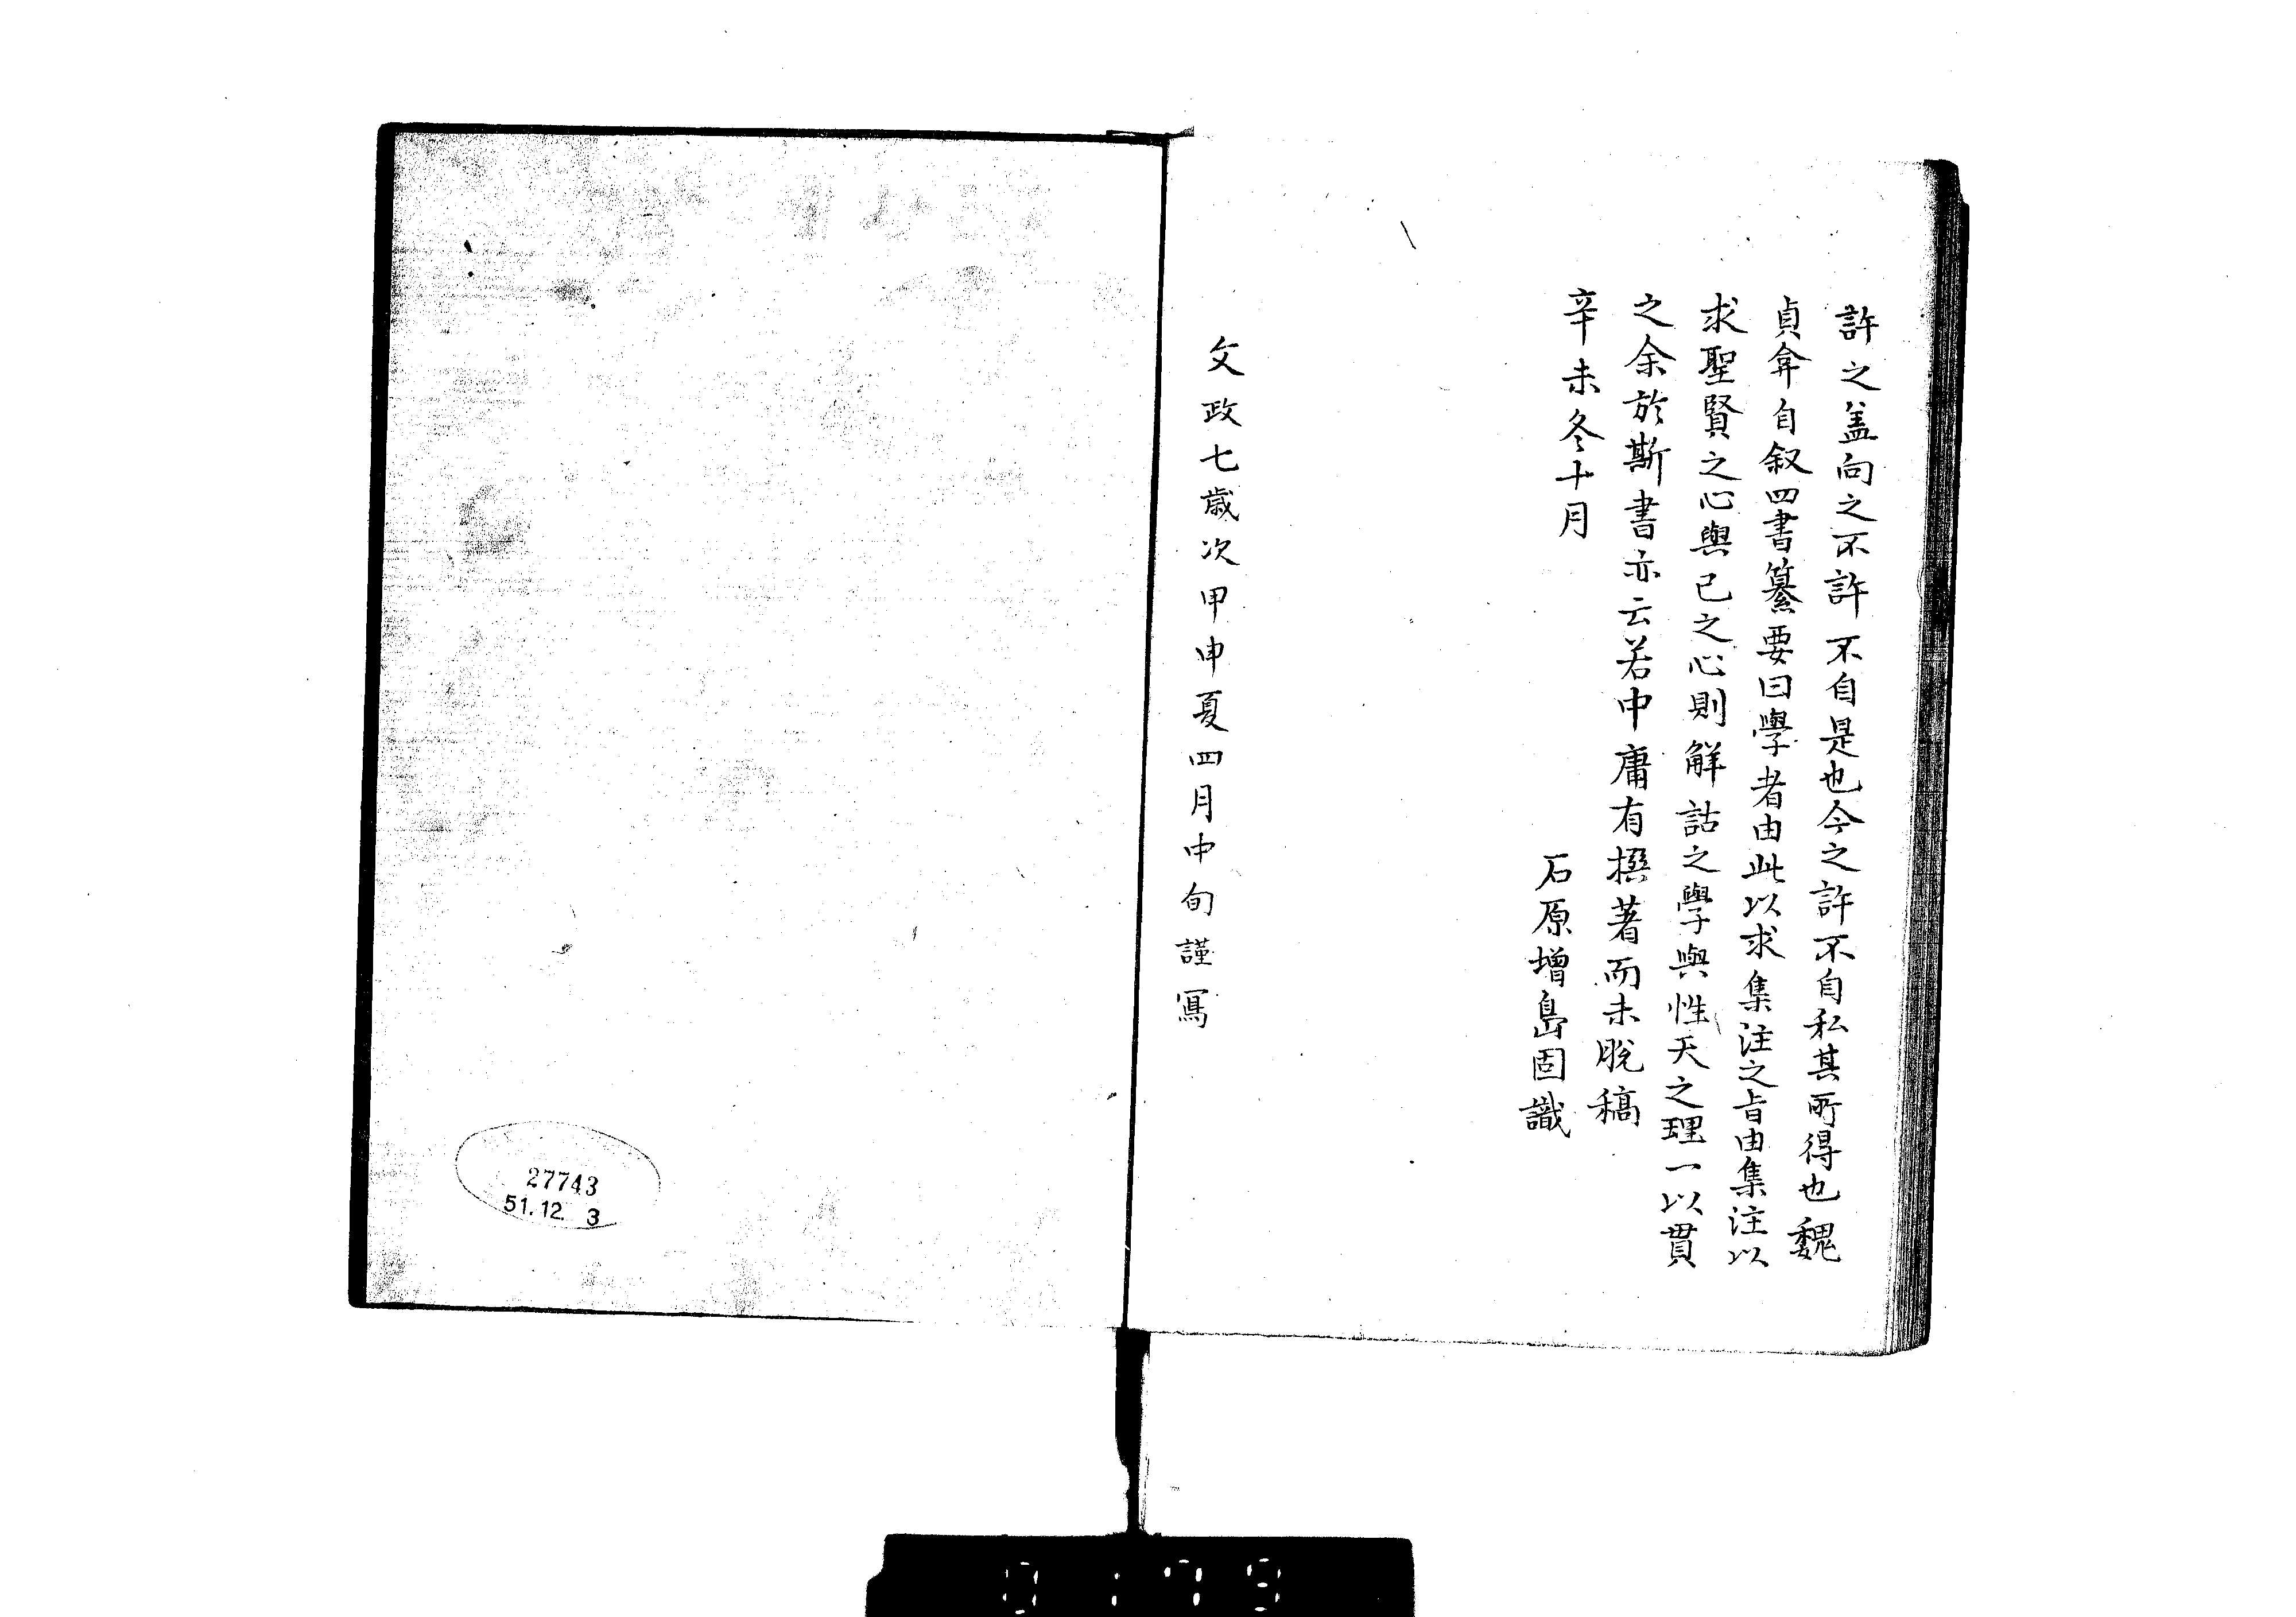 許之盖向之不許不自是也今之許不自私其所得也魏
貞弇自叙四書纂要曰學者由此以求集注之旨由集注以
求聖賢之心與己之心則解詁之學與性天之理一以貫
之余於斯書亦云若中庸有撰著而未脫稿
辛未冬十月
石原增島固識
文政七歳次甲申夏四月中旬謹寫
27743
51.12.3
0179